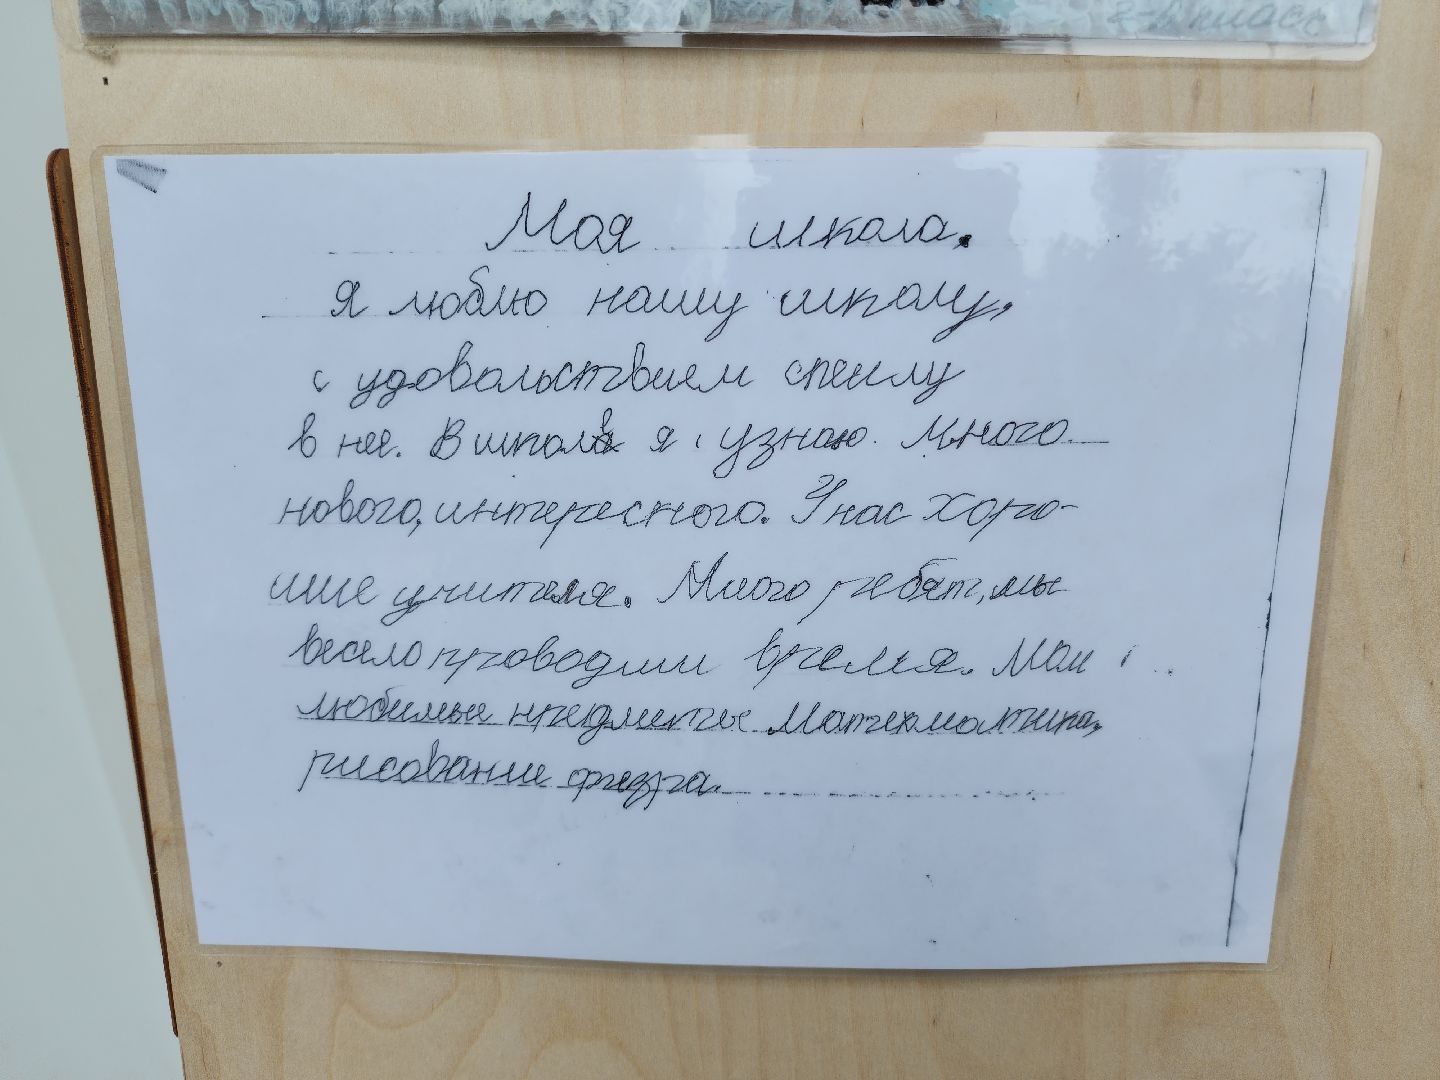 2-б класс
Моя школа.
Я люблю нашу школу,
с удовольствием спешу
в нее. В школе я узнаю много
нового, интересного. У нас хоро-
шие учителя. Много ребят, мы
весело проводим время. Мои
любимые предметы математика,
рисование физра.